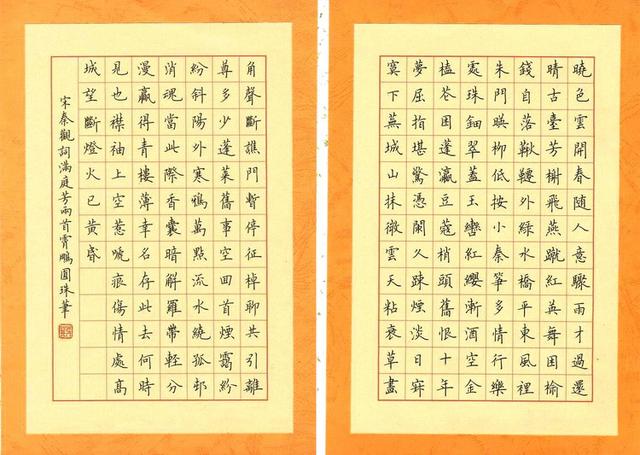 曉色雲開春隨人意驟雨才過還
晴古臺芳榭飛燕蹴紅英舞困榆
錢自落鞦韆外綠水橋平東風裡
朱門暎柳低按小秦箏多情行樂
處珠鈿翠蓋玉轡紅纓漸酒空金
榼花困蓬瀛豆蔻梢頭舊恨十年
夢屈指堪驚憑闌久踈煙淡日寂
寞下蕪城山抹微雲天粘衰草畫
角聲斷譙門暫停征棹聊共引離
尊多少蓬萊舊事空回首煙靄紛
紛斜陽外寒鴉萬點流水繞孤邨
消魂當此際香囊暗解羅帶輕分
漫贏得青樓薄幸名存此去何時
見也襟袖上空惹啼痕傷情處高
城望斷燈火已黃昏
宋秦觀詞滿庭芳兩首霄鵬圓珠筆